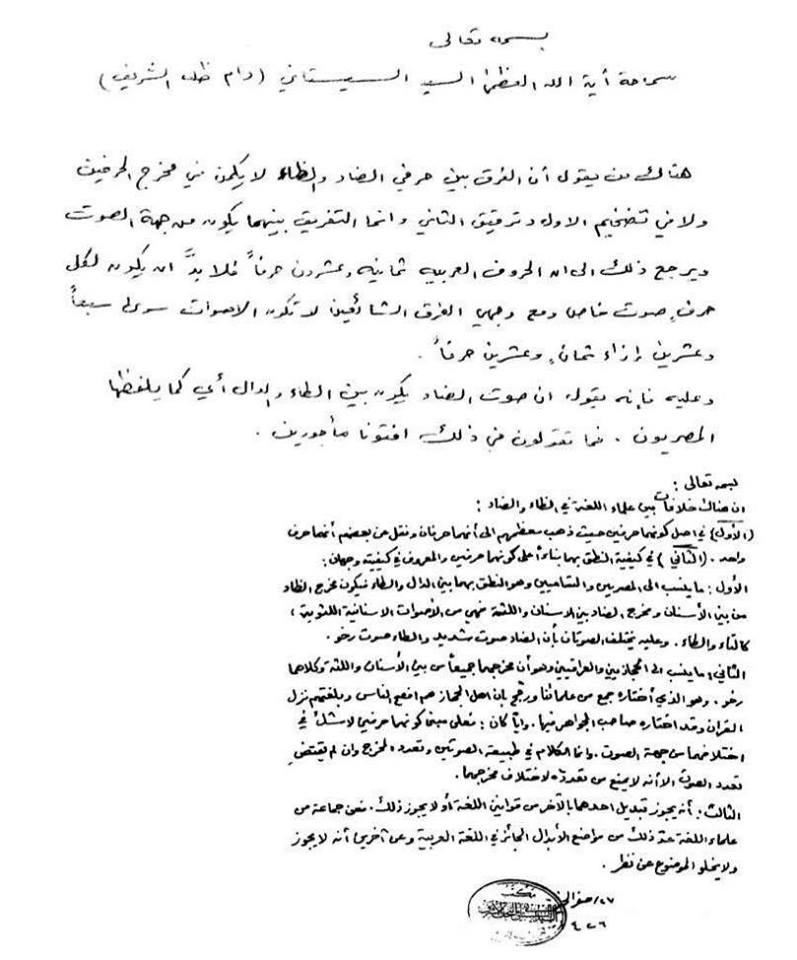 بسمه تعالى
سماحة آية الله العظمى السيد السيستاني (دام ظله الشريف)
هناك من يقول أن الفرق بين حرفي الضاد والظاء لا يكمن في مخرج الحرفين
ولا في تضخيم الاول وترقيق الثاني وانما التفريق بينهما يكون من جهة الصوت
ويرجع ذلك الى ان الحروف العربيه ثمانيه وعشرون حرفاً فلا بدَّ ان يكون لكل
حرفٍ صوت خاص ومع وجهي الفرق الشائعين لا تكون الاصوات سوى سبعاً
وعشرين إزاء ثمانٍ وعشرين حرفاً .
وعليه فإنه يقول ان صوت الضاد يكون بين الطاء والدال أي كما يلفظها
المصريون . فما تقولون في ذلك افتونا مأجورين .
بسمه تعالى :
ان هناك خلافات بين علماء اللغة في الظاء والضاد :
(الأول) في اصل كونهما حرفين حيث ذهب معظمهم الى أنهما حرفان ونقل عن بعضهم أنهما حرف
واحد . (الثاني) في كيفية النطق بهما بناءاً على كونهما حرفين والمعروف في كيفيته وجهان :
الأول : ما ينسب الى المصريين والشاميين وهو النطق بهما بين الدال والطاء فيكون مخرج الظاد
من بين الأسنان ومخرج الضاد بين الاسنان واللثة فهي من الأصوات الاسنانية اللثوية ،
كالتاء والطاء . وعليه يختلف الصوتان بأن الضاد صوت شديد والظاء صوت رخو .
الثاني : ما ينسب الى الحجازيين والعراقيين وهو أن مخرجهما جميعاً من بين الأسنان واللثة وكلاهما
رخو . وهو الذي أختاره جمع من علمائنا ورجّح بان اهل الحجاز هم افصح الناس وبلغتهم نزل
القران وقد اختاره صاحب الجواهر فيها . وأياً كان : فعلى مبنى كونهما حرفين لا شك في
اختلافهما من جهة الصوت . وانما الكلام في طبيعة الصوتين وتعدد المخرج وان لم يقتضِ
تعدد الصوت الا أنه لا يمنع من تعدده لاختلاف مخرجهما .
الثالث : أنه يجوز تبديل احدهما بالآخر من قوانين اللغة أو لا يجوز ذلك . فعن جماعة من
علماء اللغة عدّ ذلك من مواضع الأبدال الجائز في اللغة العربية وعن آخرين أنه لا يجوز
ولا يخلو الموضوع عن نظر .
٢٧/ صفر الخير
١٤٢٦
مكتب